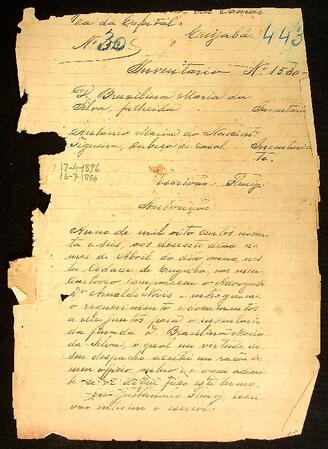 ca da Capital.
Cuijabá
443
Nº 30
Inventario Nº 1580
D. Brasilina Maria da
Silva fallecida Inventari
Antonio Maria do Nascim
Figueira, Cabeça de Casal Inventaria
te.
17-4-1896
16-7-1896
Escrivão
Autuação
Anno de mil oito centos noven
ta e seis, aos desesete dias do
mes de Abril do dito anno, nes
ta Cidade de Cuyabá, em meu
cartorio compareceu o Advogado
Arnaldo Novis
o requerimento e documentos
a elle juntos, para o inventario
da finada D. Brasilina Maria
da Silva, o qual em virtude de
seu despacho recebi em razão de
meu officio, autuo e o vem adian
te de que faço este termo.
Eu
vão interino o escrevi.